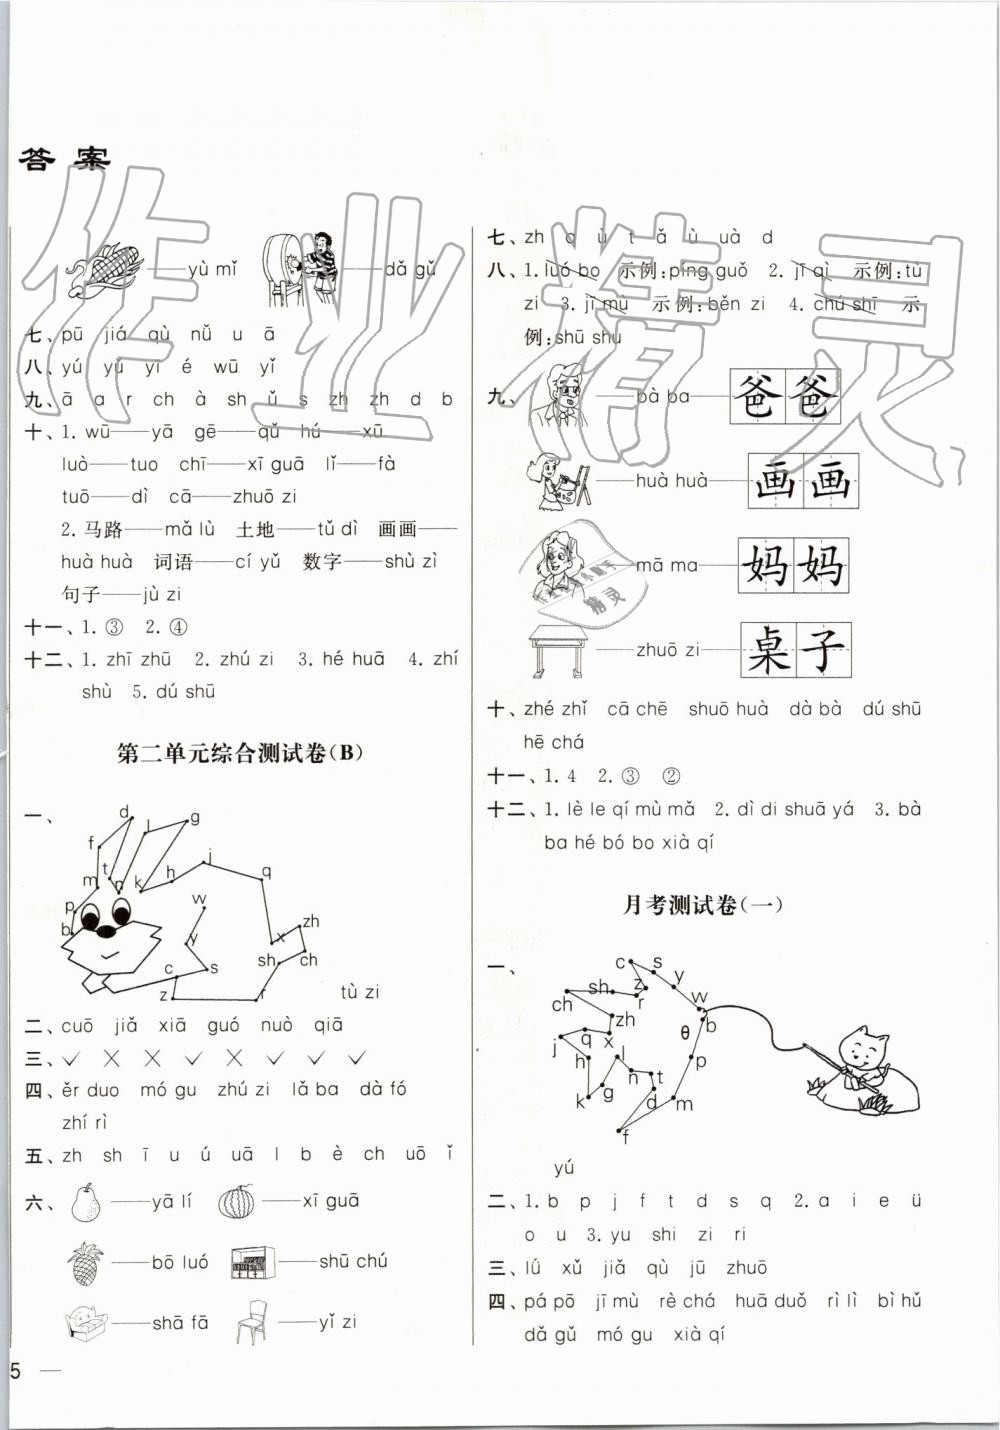 答 案
yù mǐ dǎ gǔ
七、pū jiá qù nǚ u ā
八、yú yǔ yī é wū yǐ
九、ā a r ch à sh ǔ s zh zh d b
十、1.wū——yā gē——qǔ hú——xū
luò——tuo chī——xī guā lǐ——fà
tuō——dì cā——zhuō zi
2.马路——mǎ lù 土地——tǔ dì 画画——
huà huà 词语——cí yǔ 数字——shù zì
句子——jù zi
十一、1.③ 2.④
十二、1.zhī zhū 2.zhú zi 3.hé huā 4.zhí
shù 5.dú shū
第二单元综合测试卷(B)
一、
d l g
f t n k h j q
m p b
w y x zh
c s sh ch
z r
tù zi
二、cuō jiǎ xiā guó nuò qiā
三、✓ ╳ ╳ ✓ ╳ ✓ ✓ ✓
四、ěr duo mó gu zhú zi lǎ ba dà fó
zhí rì
五、zh sh ī u ú uā l b è ch uō ǐ
六、——yā lí ——xī guā
——bō luó ——shū chú
——shā fā ——yǐ zi
5 —
七、zh q ù t ǎ ù uà d
八、1.luó bo 示例:píng guǒ 2.jī qì 示例:tù
zi 3.jī mù 示例:běn zi 4.chú shī 示
例:shū shu
九、——bà ba——爸爸
——huà huà——画画
——mā ma——妈妈
——zhuō zi——桌子
十、zhé zhǐ cā chē shuō huà dà bà dú shū
hē chá
十一、1.4 2.③ ②
十二、1.lè le qí mù mǎ 2.dì di shuā yá 3.bà
ba hé bó bo xià qí
月考测试卷(一)
一、
c s y w b
ch sh z r
zh θ
j q x l p
h n t
k g d m
f
yú
二、1.b p j f t d s q 2.a i e ü
o u 3.yu shi zi ri
三、lǘ xǔ jiǎ qù jū zhuō
四、pá pō jī mù rè chá huā duǒ rì lì bì hǔ
dǎ gǔ mó gu xià qí
作业精灵